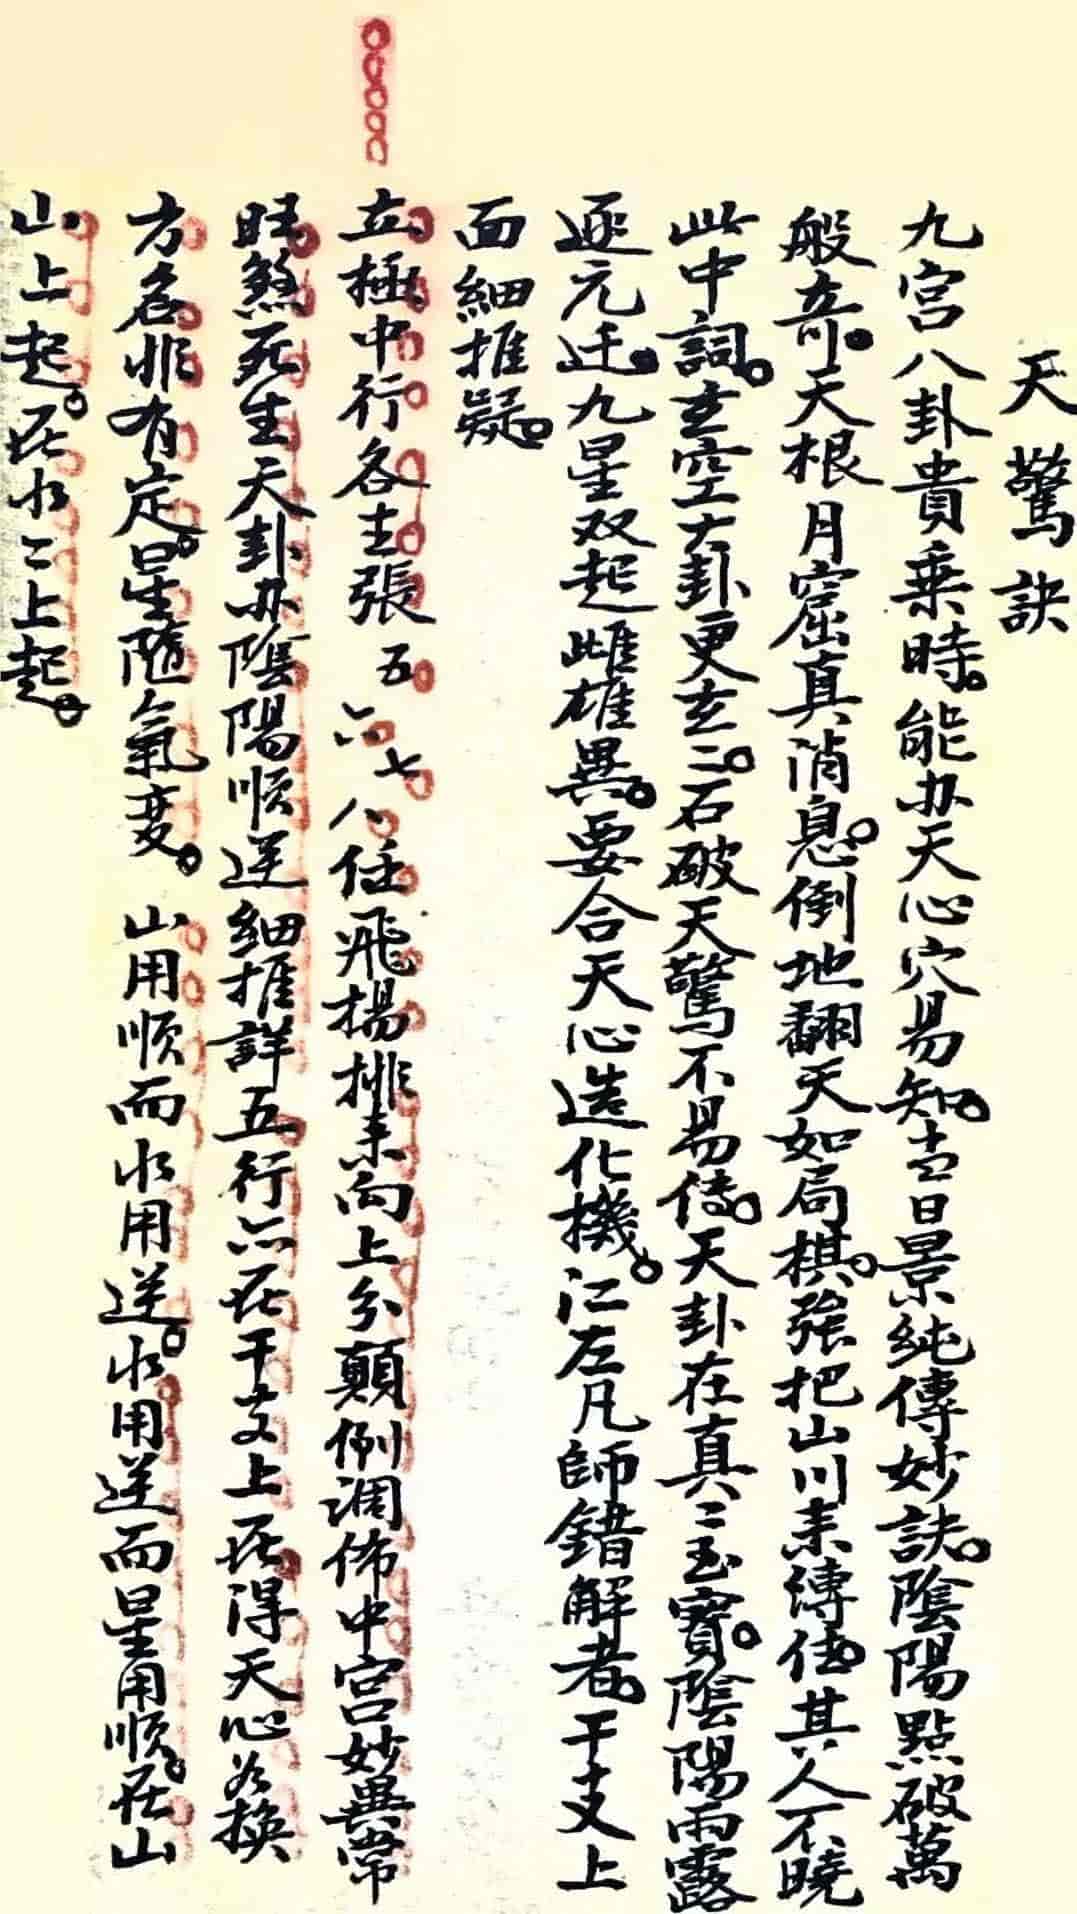 天驚訣
九宫八卦貴乗時。能办天心穴易知。昔日景純傳妙訣。陰陽點破萬
般奇。天根月窟真消息。倒地翻天如局棋。強把山川来傳 其人不曉
此中詞。玄空大卦更玄〻。石破天驚不易传。天卦在真〻玉寶。陰陽雨露
逐元迁。九星双起雌雄異。要合天心造化機。江左凡師錯解者。干支上
面細推疑。
立極中行各主張 五六七八任飛揚排来向上分顛倒調佈中宫妙異常
旺煞死生天卦办陰陽順逆細推詳五行不在干支上在得天心為换
方名非有定。星隨氣变。山用順而水用逆。水用逆而星用順。在山
山上起。在水〻上起。